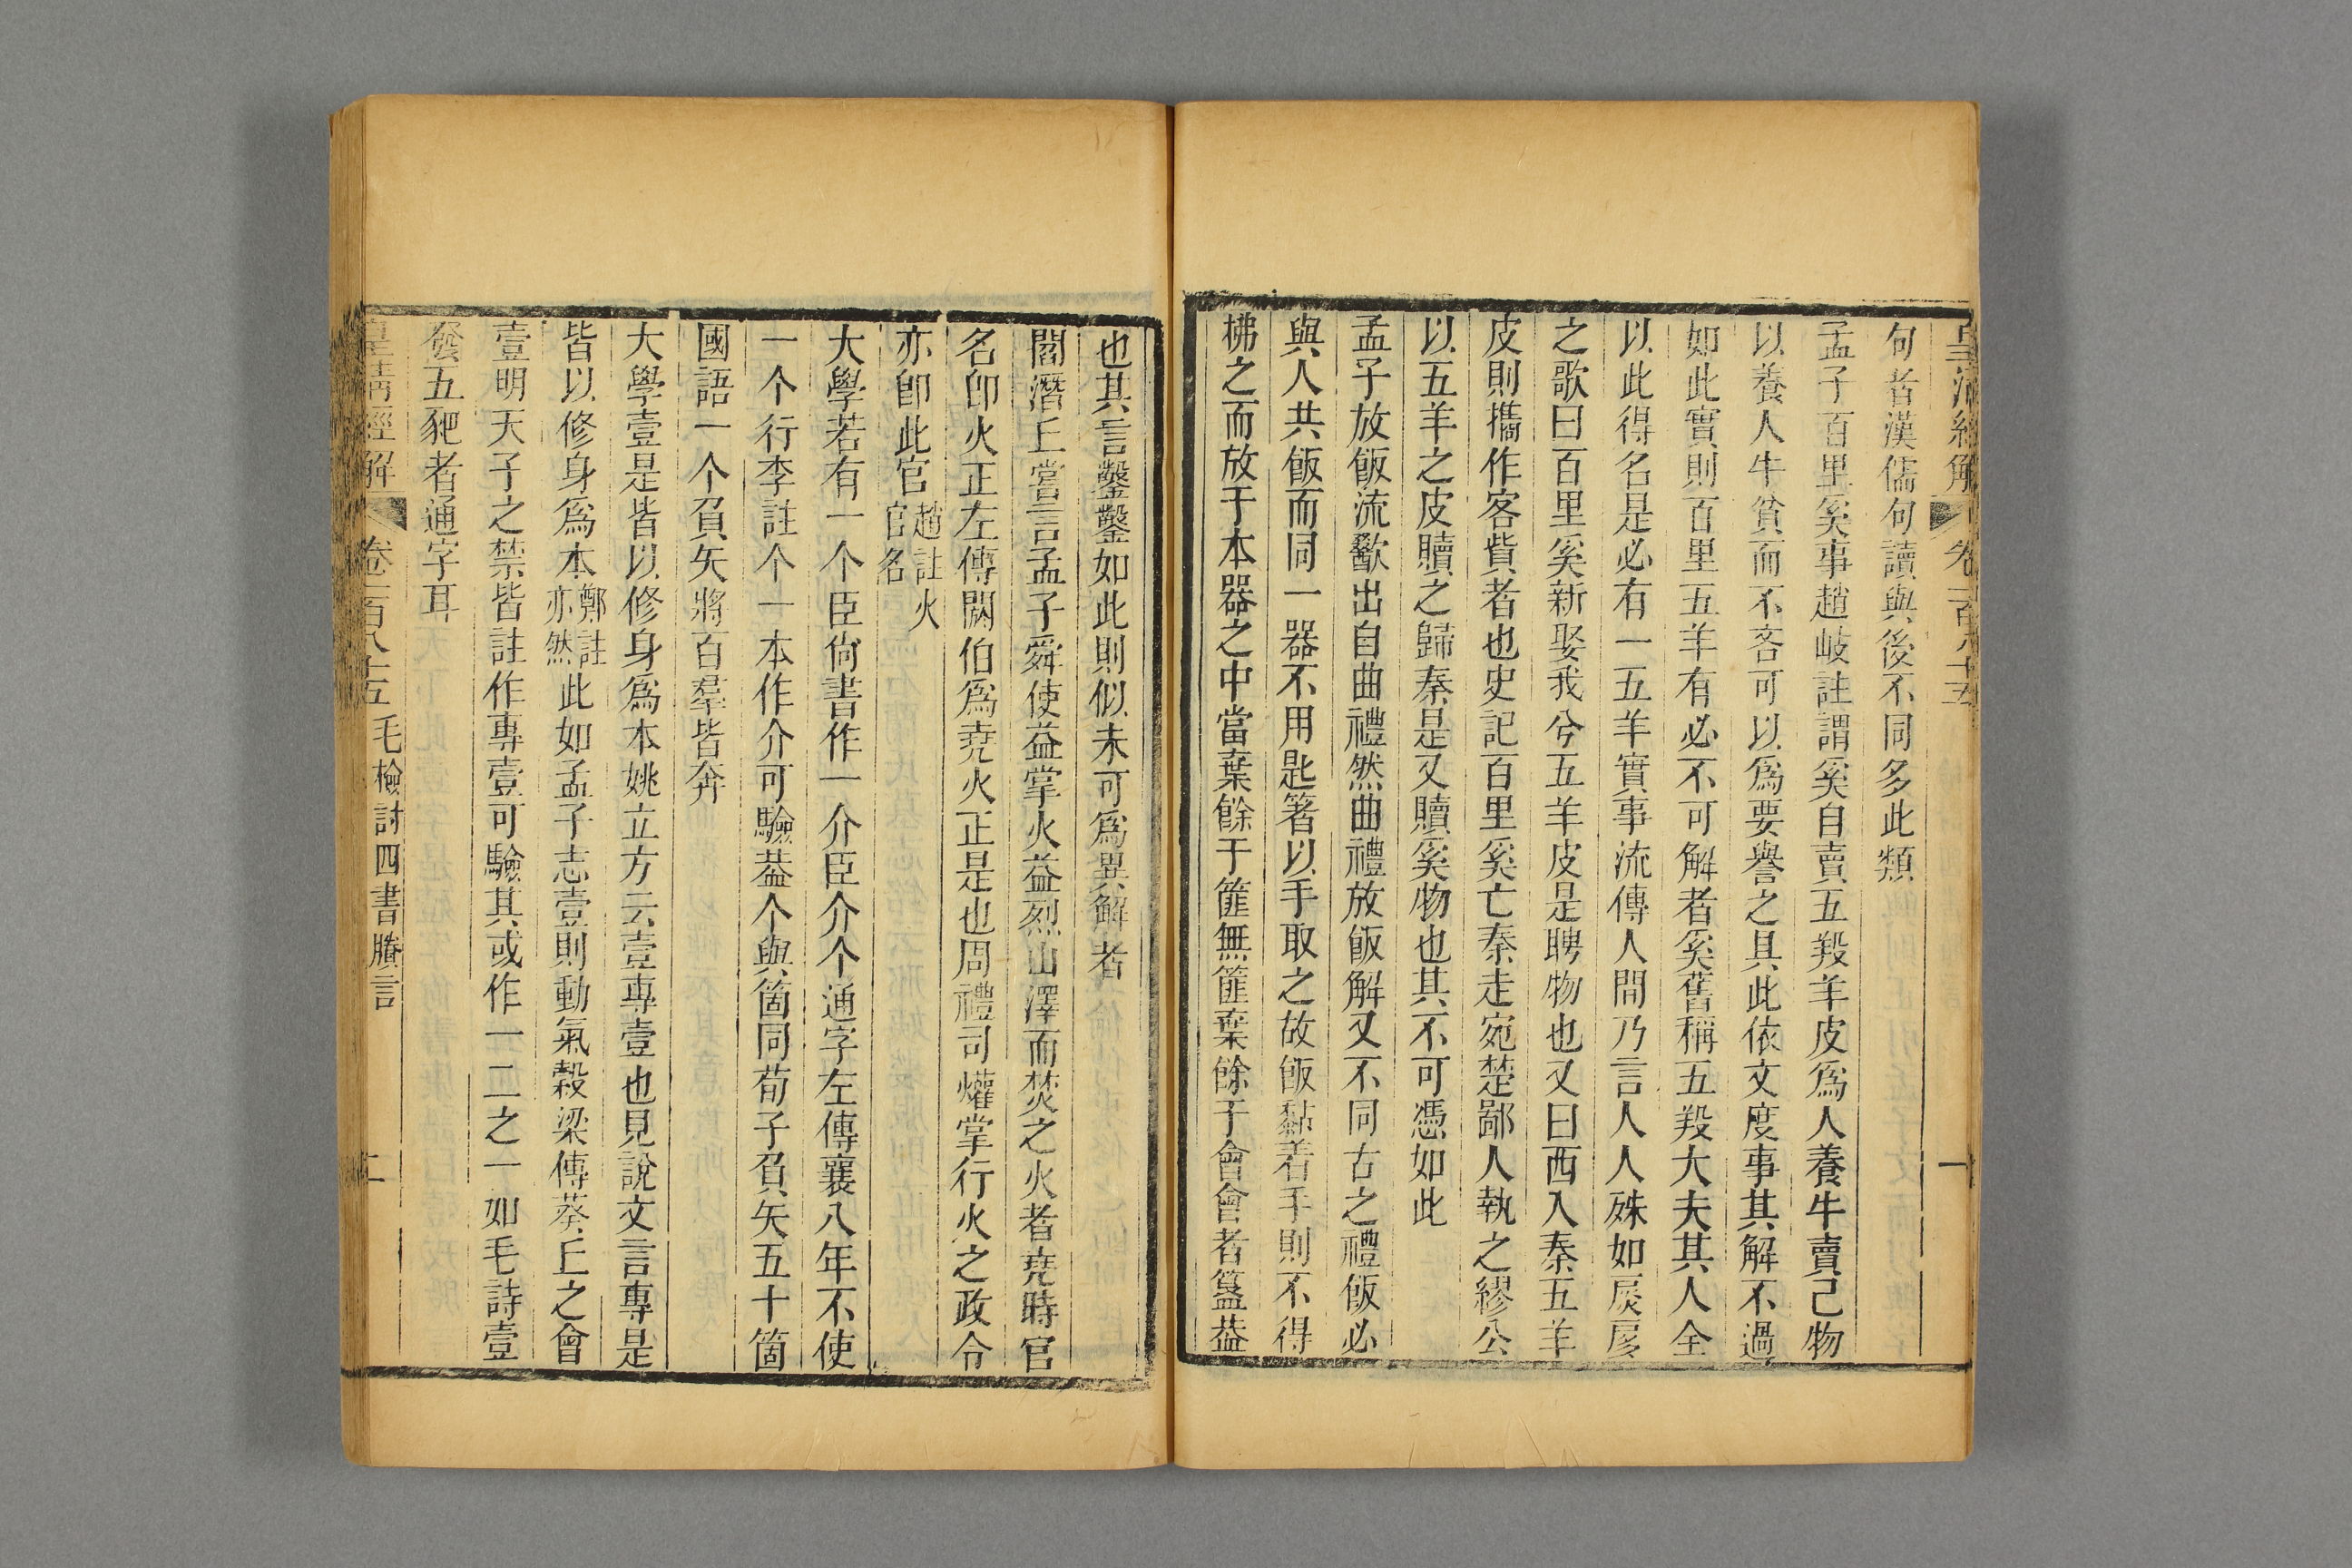 皇清經解 卷一百八十五 一
句者漢儒句讀與後不同多此類
孟子百里奚事趙岐註謂奚自賣五羖羊皮爲人養牛賣己物
以養人牛貧而不吝可以爲要譽之具此依文度事其解不過
如此實則百里五羊有必不可解者奚舊稱五羖大夫其人全
以此得名是必有一五羊實事流傳人間乃言人人殊如扊扅
之歌曰百里奚新娶我兮五羊皮是聘物也又曰西入秦五羊
皮則攜作客貲者也史記百里奚亡秦走宛楚鄙人執之繆公
以五羊之皮贖之歸秦是又贖奚物也其不可憑如此
孟子放飯流歠出自曲禮然曲禮放飯解又不同古之禮飯必
與人共飯而同一器不用匙箸以手取之故飯黏着手則不得
拂之而放于本器之中當棄餘于篚無篚棄餘于會會者簋蓋
也其言鑿鑿如此則似未可爲異解者
閻潛丘嘗言孟子舜使益掌火益烈山澤而焚之火者堯時官
名卽火正左傳閼伯爲堯火正是也周禮司爟掌行火之政令
亦卽此官趙註火官名
大學若有一个臣尚書作一介臣介个通字左傳襄八年不使
一个行李註个一本作介可驗葢个與箇同荀子負矢五十箇
國語一个負矢將百羣皆奔
大學壹是皆以修身爲本姚立方云壹專壹也見說文言專是
皆以修身爲本鄭註亦然此如孟子志壹則動氣穀梁傳葵丘之會
壹明天子之禁皆註作專壹可驗其或作一二之一如毛詩壹
發五豝者通字耳
皇清經解 卷一百八十五 毛檢討四書賸言 二